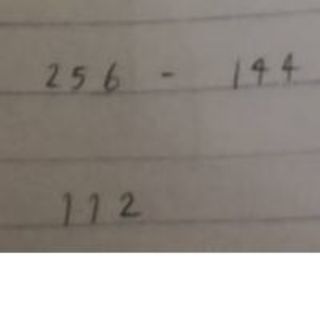 256 - 144
112